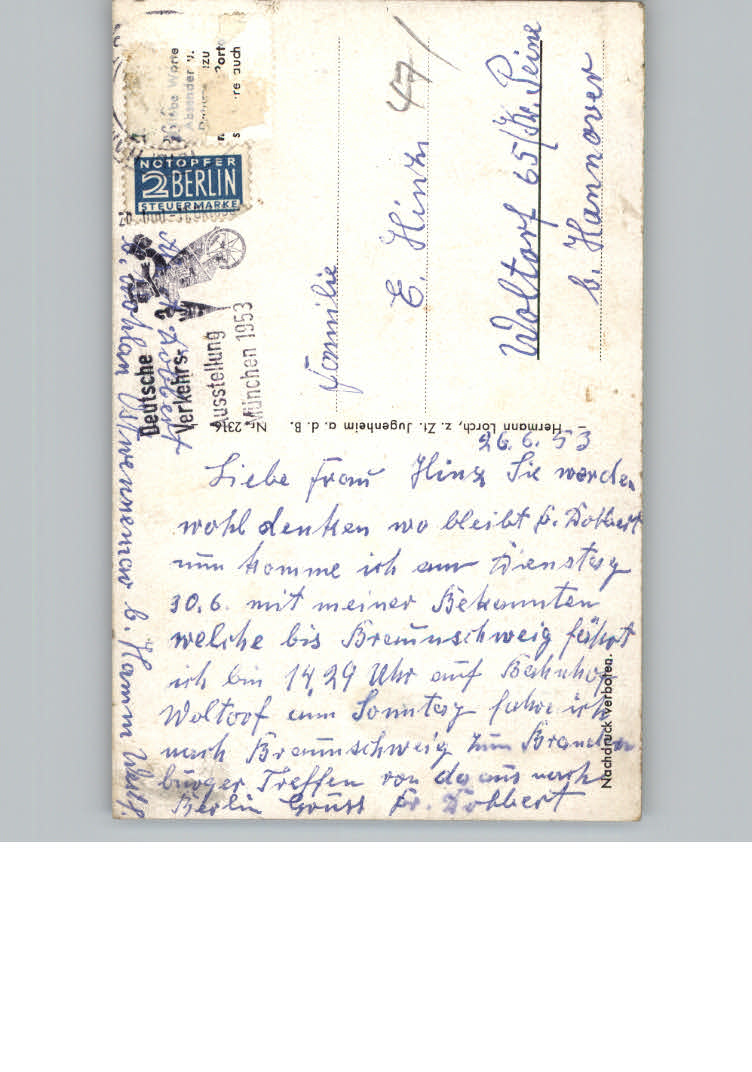 NOTOPFER
2 BERLIN
STEUERMARKE
Deutsche
Verkehrs-
Ausstellung
München 1953
Familie
E. Hinz
47/
Woltorf 65/Kr. Peine
b. Hannover
Hermann Lorch, z. Zt. Jugenheim a. d. B. Nr. 2316
26.6.53
Liebe Frau Hinz Sie werden
wohl denken wo bleibt Fr. Dobbert
nun komme ich am Dienstag
30.6. mit meiner Bekannten
welche bis Braunschweig fährt
ich bin 14,29 Uhr auf Bahnhof
Woltorf am Sonntag fahre ich
nach Braunschweig zum Branden
burger Treffen von da aus nach
Berlin Gruss Fr. Dobbert
Nachdruck verboten.
Dobbert
b. Hamm Westf.